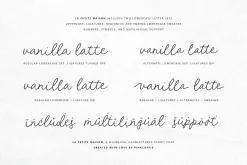 LA PETITE MAISON INCLUDES TWO LOWERCASE LETTER SETS
UPPERCASE, LIGATURES, BEGINNING AND ENDING LOWERCASE SWASHES
NUMBERS, SYMBOLS, AND MULTILINGUAL SUPPORT
vanilla latte vanilla latte
REGULAR LOWERCASE SET, LIGATURES TURNED OFF ALTERNATE LOWERCASE SET, LIGATURES OFF
vanilla latte vanilla latte
REGULAR LOWERCASE + LIGATURES ON REGULAR + LIGATURES + ALTERNATES + SWASHES
includes multilingual support
LA PETITE MAISON, A MINIMAL HANDLETTERED SCRIPT FONT
CREATED WITH LOVE BY PINKCOFFIE